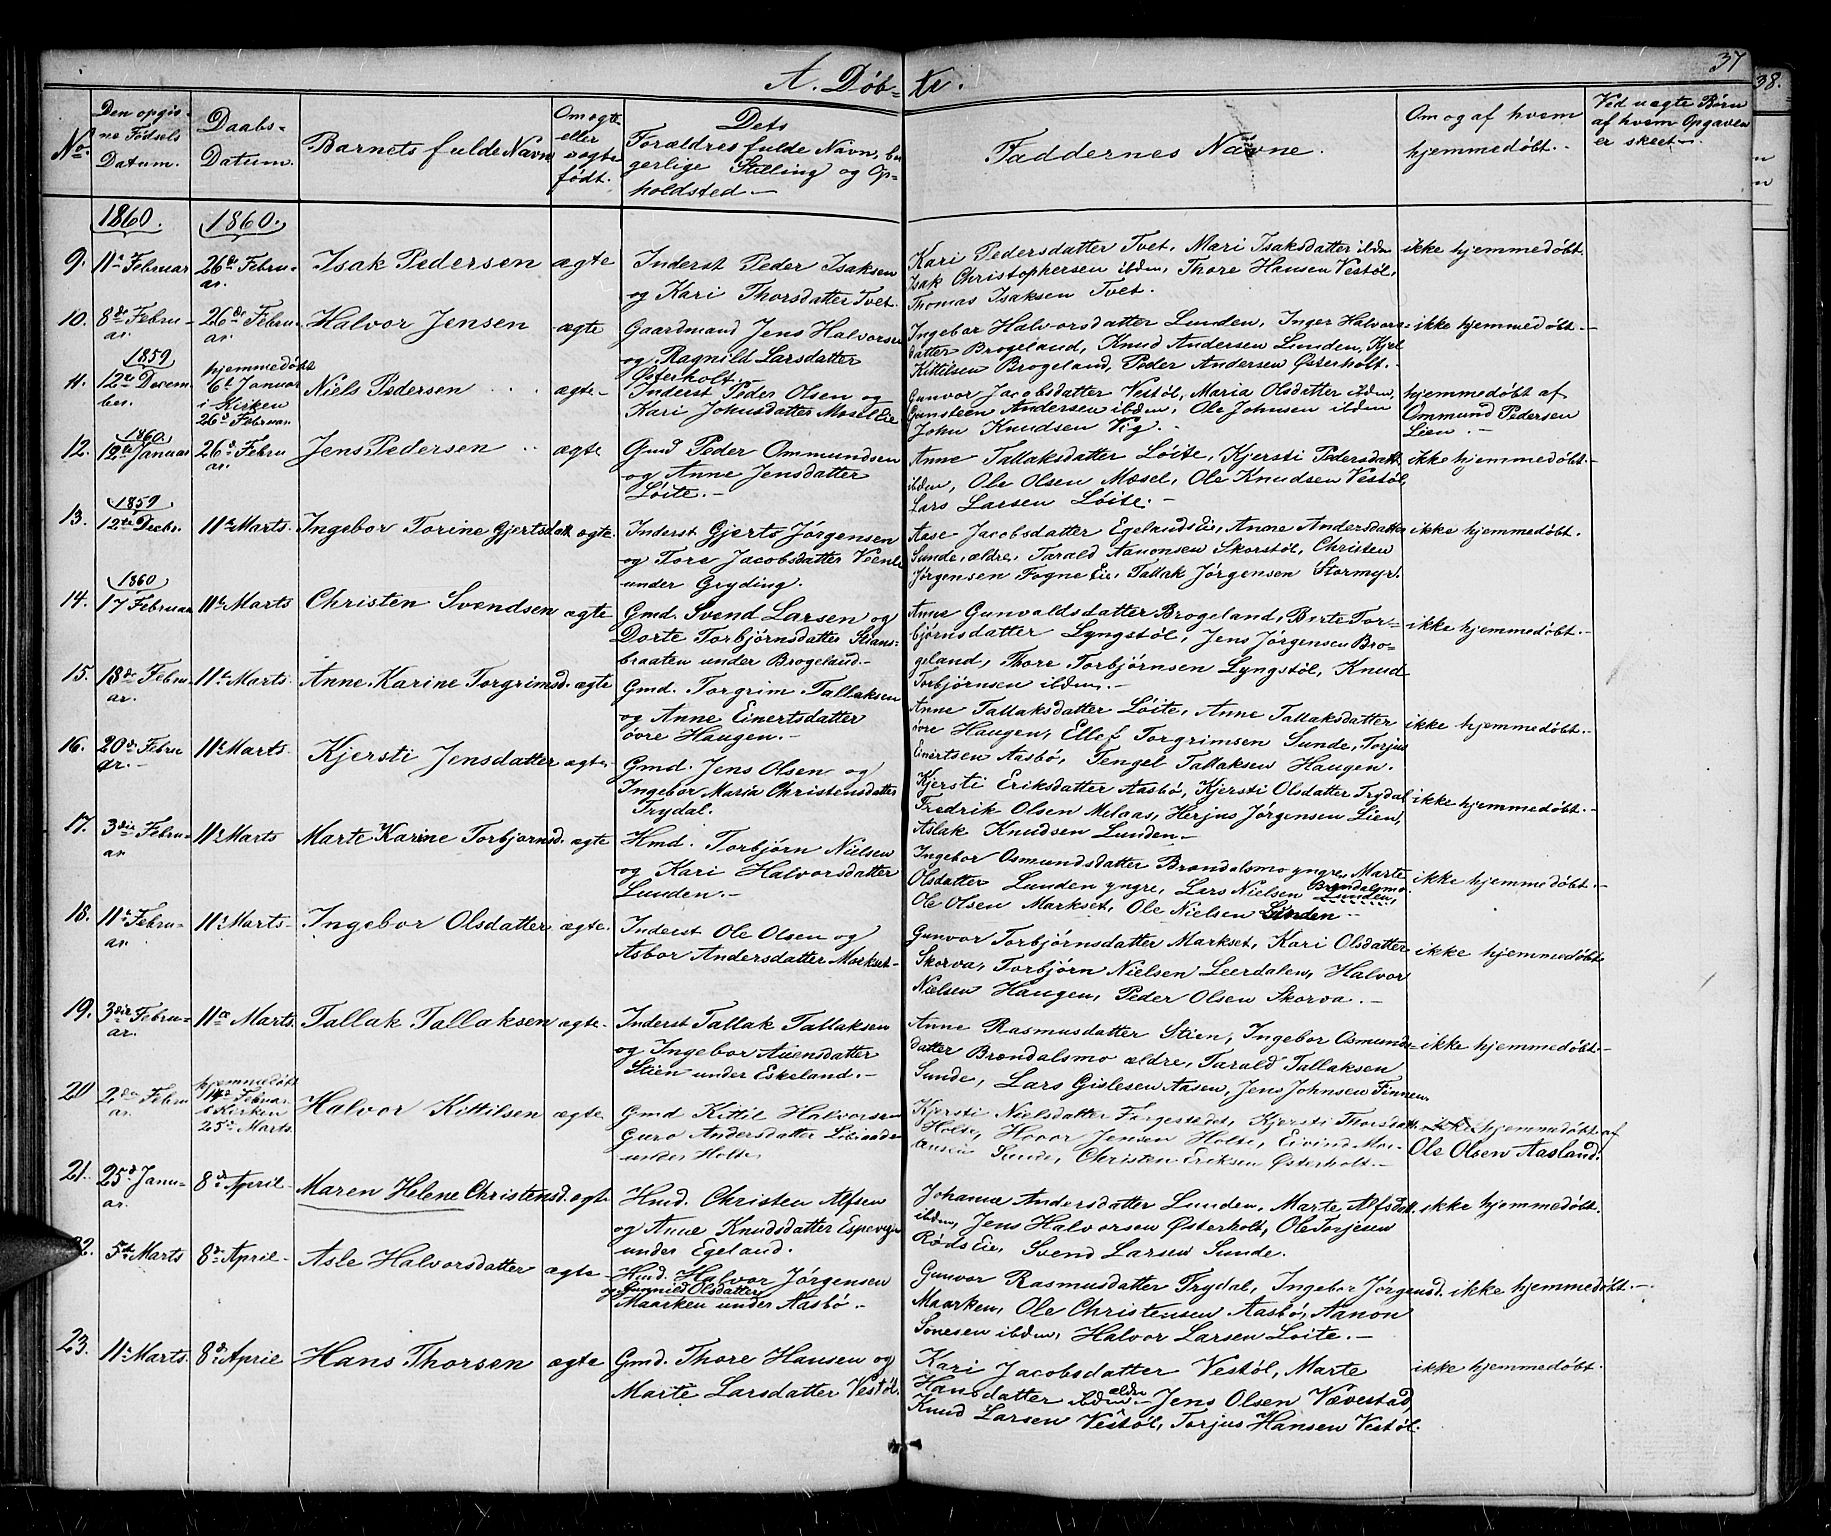 A. Døbte.
37
38.
No.
Den opgivne Fødsels Datum.
Daabs-Datum.
Barnets fulde Navn
Om ægte eller uægte født.
Dets Forældres fulde Navn, borgerlige Stilling og Opholdsted.-
Faddernes Navne.
Om og af hvem hjemmedøbt.-
Ved uægte Børn af hvem Opgaven er skeet-.
1860.
1860.
9. 11te Februar 26de Februar. Isak Pedersen ægte
Inderst Peder Isaksen
og Kari Thorsdatter Tvet.
Kari Pedersdatter Tvet, Mari Isaksdatter ibdn
Isak Christophersen ibdm, Thore Hansen Vestøl,
Thomas Isaksen Tvet.
ikke hjemmedøbt.
10. 8de Februar. 26de Februar. Halvor Jensen ægte
Gaardmand Jens Halvorsen
og Ragnild Larsdatter
Østerholt.
Ingebor Halvorsdatter Lunden, Inger Halvors-
datter Brogeland, Knud Andersen Lunden, Kjel
Kittilsen Brogeland, Peder Andersen Østerholt.-
ikke hjemmedøbt.-
1859
11. 12te December. hjemmedøbt 6te Januar i Kirken 26de Februar. Niels Pedersen ægte-
Inderst Peder Olsen og
Kari Johnsdatter Mosel Eie
Gunvor Jacobsdatter Vestøl, Maria Olsdatter ibdm,
Gunsteen Andersen ibdm, Ole Johnsen ibdm
John Knudsen Vig.-
hjemmedøbt af
Ommund Pedersen
Lien.-
1860.
12. 12te Januar 26de Februar. Jens Pedersen ægte
Gmd Peder Ommundsen
og Anne Jensdatter
Løite.-
Anne Tallaksdatter Løite, Kjersti Pedersdatt.
ibdm, Ole Olsen Mosel, Ole Knudsen Vestøl,
Lars Larsen Løite.-
ikke hjemmedøbt.-
1859
13. 12te Decbr. 11te Marts. Ingebor Torine Gjertsdatt. ægte.
Inderst Gjerts Jørgensen
og Tore Jacobsdatter
under Gryding.
Aase Jacobsdatter Egelands Eie, Anne Andersdatter
Sunde, ældre, Tarald Aanonsen Skorstøl, Christen
Jørgensen Fogne Eie, Tallak Jørgensen Stormyr.
ikke hjemmedøbt.
1860
14. 17 Februar 11te Marts Christen Svendsen ægte
Gmd. Svend Larsen og
Dorte Torbjørnsdatter
braaten under Brogeland.-
Anne Gunvaldsdatter Brogeland, Berte Tor-
bjørnsdatter Lyngstøl, Jens Jørgensen Bro-
geland, Thore Torbjørnsen Lyngstøl, Knud
Torbjørnsen ibdm.-
ikke hjemmedøbt.-
15. 18de Februar. 11te Marts. Anne Karine Torgrimsd. ægte
Gmd. Torgrim Tallaksen
og Anne Einertsdatter
øvre Haugen.-
Anne Tallaksdatter Løite, Anne Tallaksdatter
øvre Haugen, Ellef Torgrimsen Sunde, Torjus
Einertsen Aasbø, Tengel Tallaksen Haugen.
ikke hjemmedøbt.-
16. 20de Februar.- 11te Marts. Kjersti Jensdatter ægte.
Gmd. Jens Olsen og
Ingebor Maria Christensdatter
Trydal.
Kjersti Eriksdatter Aasbø, Kjersti Olsdatter Trydal
Fredrik Olsen Melaas, Herjus Jørgensen Lien,
Aslak Knudsen Lunden-
ikke hjemmedøbt.-
17. 3die Februar. 11te Marts Marte Karine Torbjørnsd. ægte
Hmd. Torbjørn Nielsen
og Kari Halvorsdatter
Lunden.-
Ingebor Osmundsdatter Brøndalsmo yngre, Marte
Olsdatter Lunden yngre, Lars Nielsen Lunden, Brøndalsmo.
Ole Olsen Markset, Ole Nielsen Linden-
ikke hjemmedøbt.-
18. 11te Februar. 11te Marts- Ingebor Olsdatter ægte.
Inderst Ole Olsen og
Asbor Andersdatter Markset-
Gunvor Torbjørnsdatter Markset, Kari Olsdatter
Skorva, Torbjørn Nielsen Leerdalen, Halvor
Nielsen Haugen, Peder Olsen Skorva.-
ikke hjemmedøbt
19. 3die Februar. 11te Marts. Tallak Tallaksen ægte-
Inderst Tallak Tallaksen
og Ingebor Auensdatter
Stien under Eskeland.-
Anne Rasmusdatter Stien, Ingebor Osmunds-
datter Brøndalsmo ældre, Tarald Tallaksen
Sunde, Lars Gislesen Aasen, Jens Johnsen Finnem
ikke hjemmedøbt-
20 2den Februar. hjemmedøbt 14de Februar i Kirken 25de Marts. Halvor Kittilsen ægte
Gmd Kittil Halvorsen
Guro Andersdatter
under Holte.
Kjersti Nielsdatter Fargestedet, Kjersti Thorsdatt.
Holte, Hovor Jensen Holte, Eivind
Sunde, Christen Eriksen Østerholt.-
ikke hjemmedøbt af
Ole Olsen Aasland.
21. 25de Januar. 8de April- Maren Helene Christensd. ægte
Hmd. Christen Alfsen
og Anne Knudsdatter
under Egeland.
Johanne Andersdatter Lunden, Marte Alfsdat.
ibdm, Jens Halvorsen Østerholt, Ole Torjesen
Røds Eie, Svend Larsen Sunde.
ikke hjemmedøbt.
22. 5te Marts 8de April- Asle Halvorsdatter ægte
Hmd. Halvor Jørgensen
og Gunnild Olsdatter
Maarken under Aasbø.-
Gunvor Rasmusdatter Trydal, Ingebor Jørgensd.
Maarken, Ole Christensen Aasbø, Aanon
Sonesen ibdm, Halvor Larsen Løite.-
ikke hjemmedøbt-.
23. 11te Marts. 8de April Hans Thorsen ægte
Gmd. Thore Hansen og
Marte Larsdatter Vestøl.
Kari Jacobsdatter Vestøl, Marte
Hansdatter ibdm ældre- Jens Olsen Vævestad,
Knud Larsen Vestøl, Torjus Hansen Vestøl.
ikke hjemmedøbt.